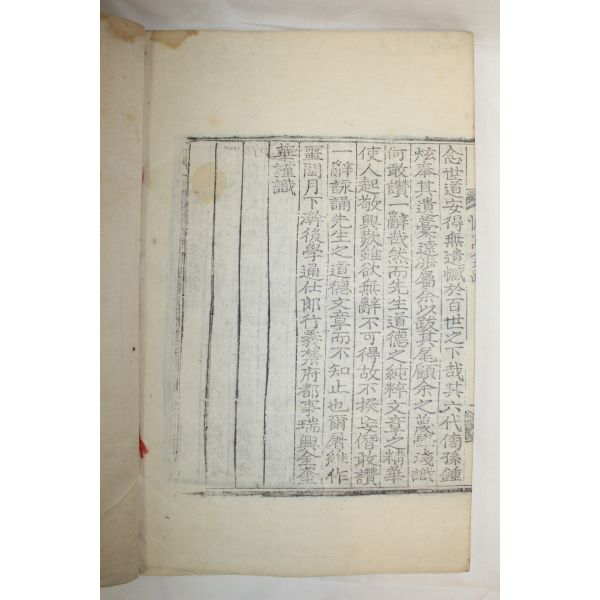 念世道安得無遺憾於百世之下哉其六代傍孫鍾
炫奉其遺藁遠涉屬余以跋其尾顧余之蔑淺識
何敢讚一辭哉然而先生道德之純粹文章之精華
使人起敬興歎雖欲無辭不可得故不揆妄僭敢讚
一辭詠誦先生之道德文章而不知止也爾屠維作
噩閏月下澣後學通仕郎行義禁府都事瑞興金奎
華謹識